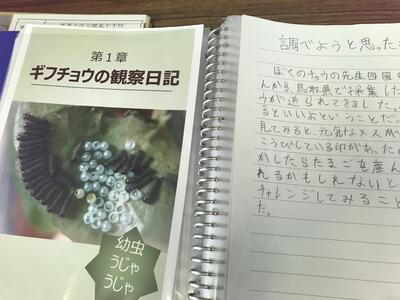 第1章
ギフチョウの観察日記
幼虫
うじゃ
うじゃ
調べようと思った
ぼくのチョウの先生四国の
んから鳥取県で採集した
ウが送られてきました。
るといいよということだ
見てみると、元気なメスが
こうびしている印があった
かしたらたまごを産ん
れるかもしれないと
チャレンジしてみること
た。